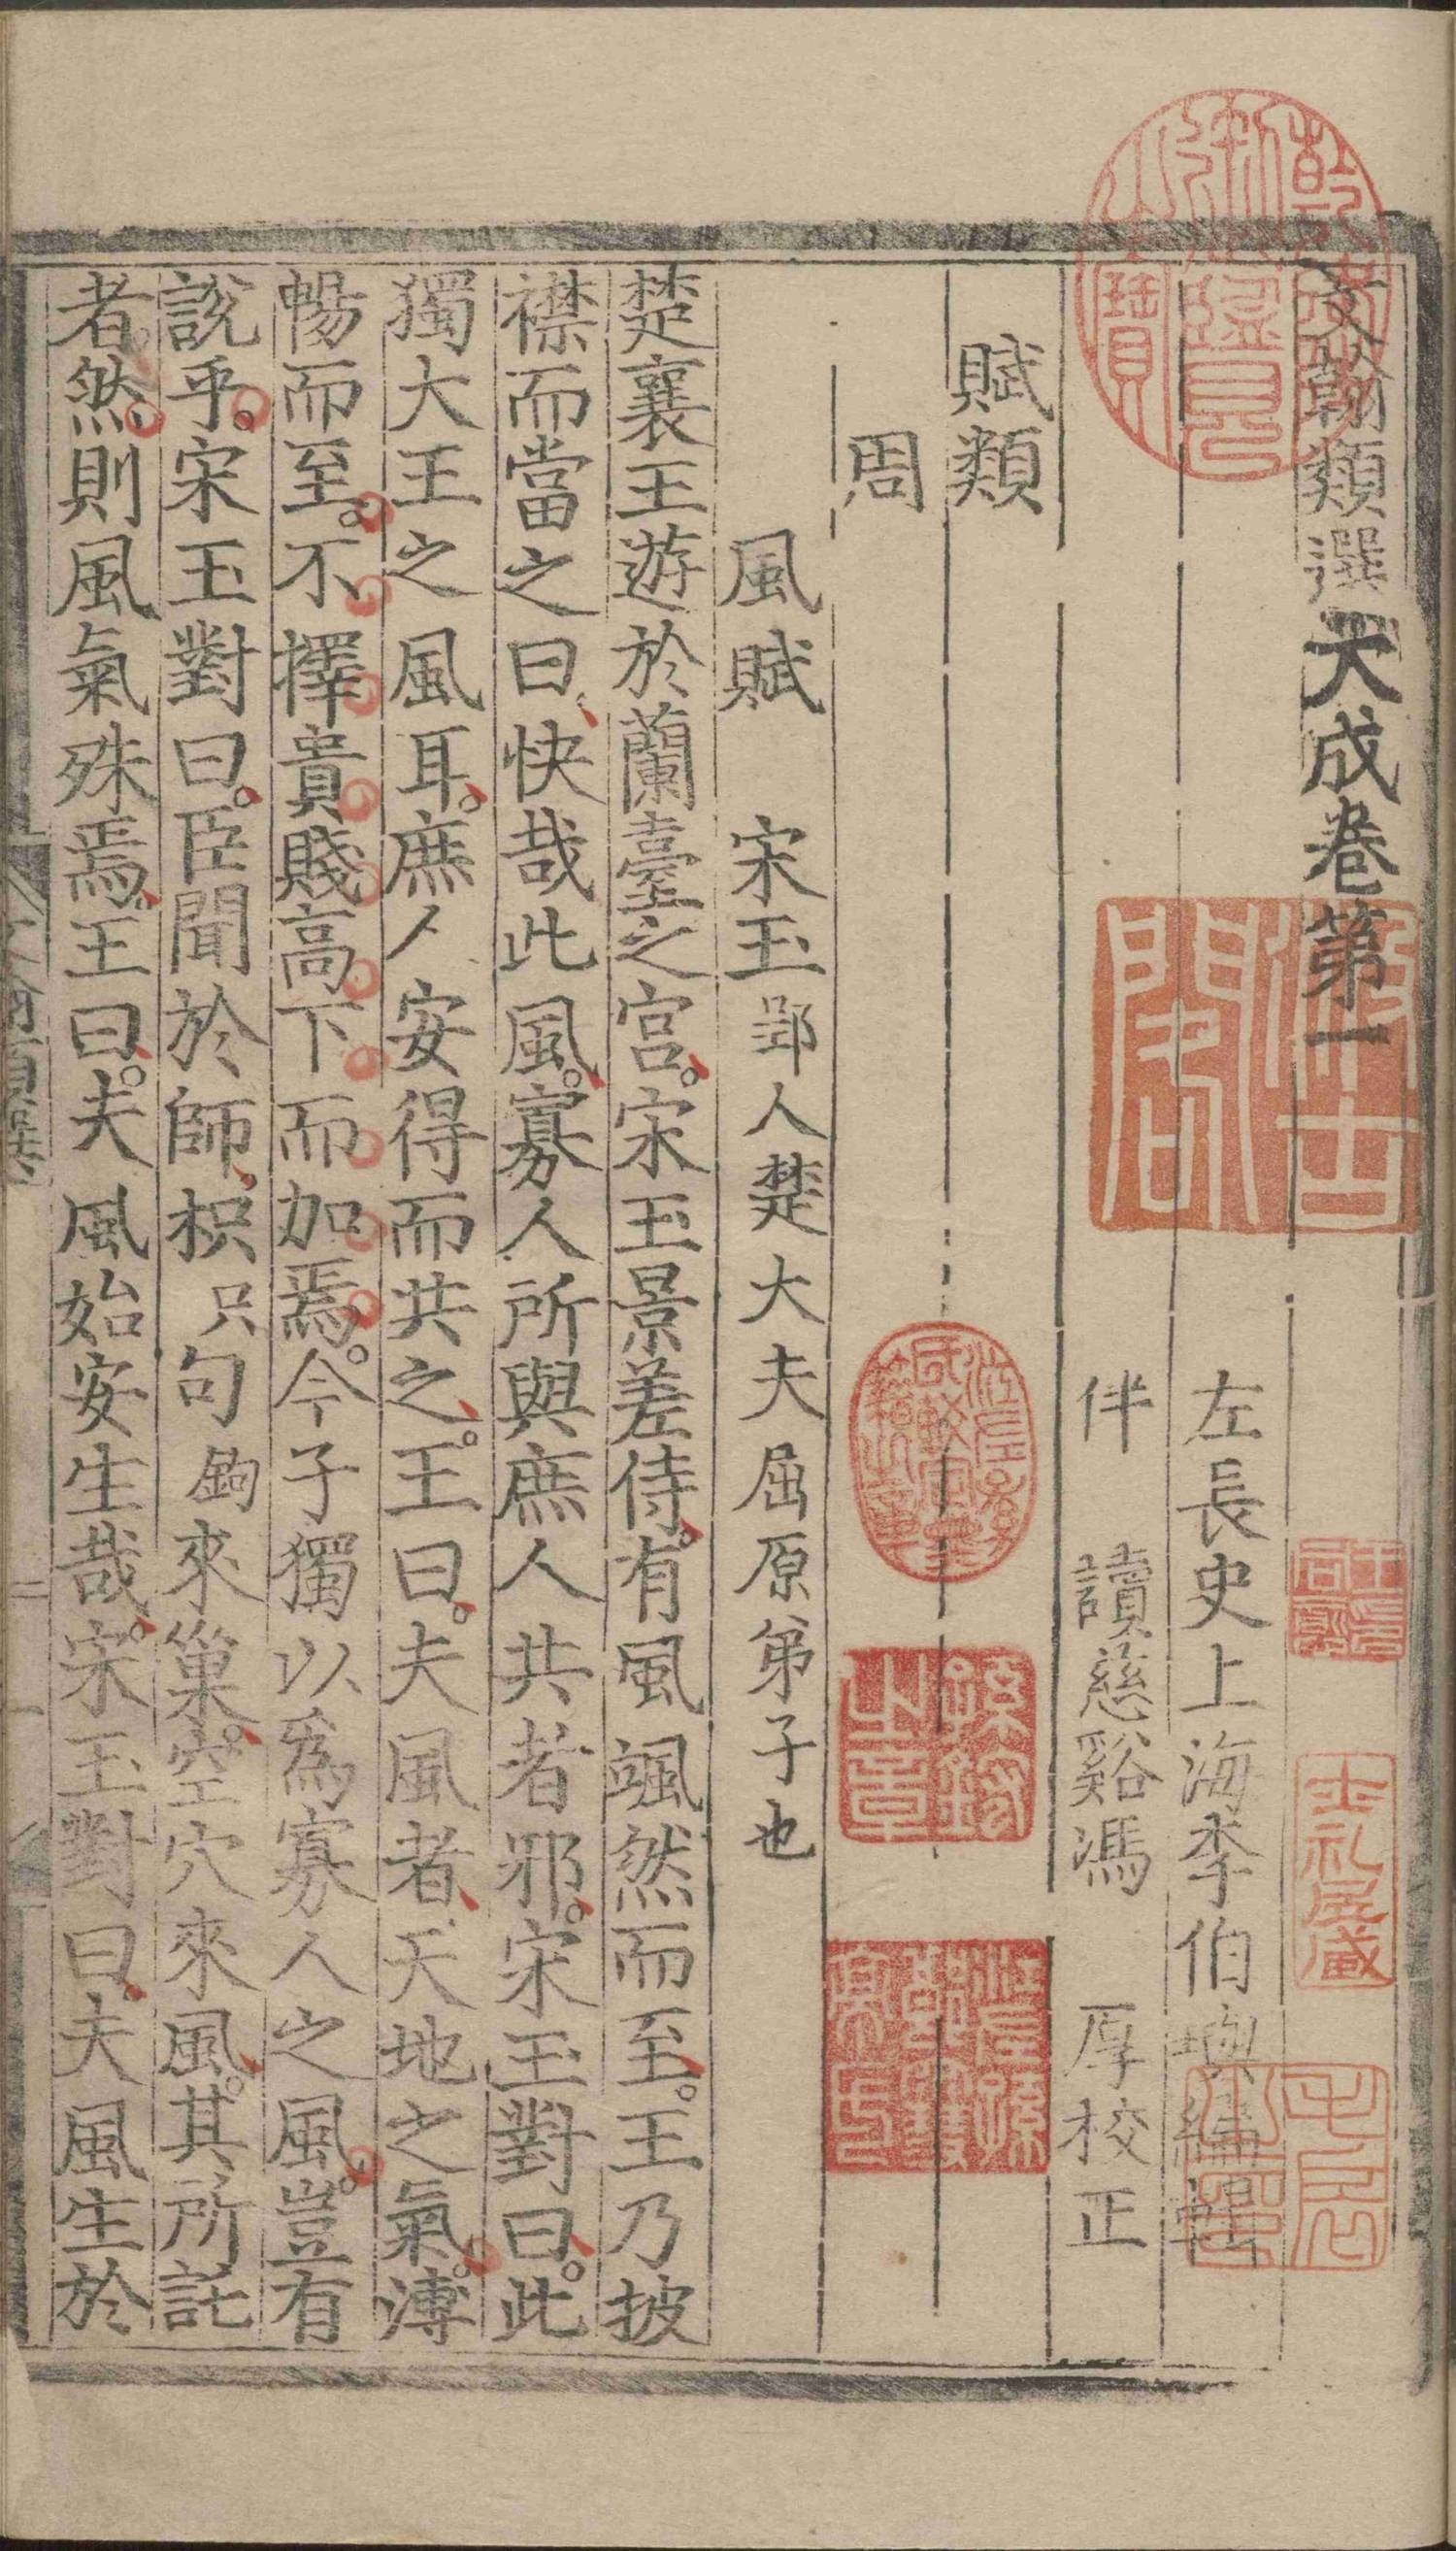 文翰類選大成卷第一
左長史上海李伯璵編輯
伴讀慈谿馮厚校正
賦類
周
風賦 宋玉 郢人楚大夫屈原弟子也
楚襄王遊於蘭臺之宮。宋玉景差侍。有風颯然而至。王乃披
襟而當之曰、快哉此風。寡人所與庶人共者邪。宋玉對曰。此
獨大王之風耳。庶人安得而共之。王曰。夫風者、天地之氣。溥
暢而至。不擇貴賤高下而加焉。今子獨以爲寡人之風。豈有
說乎。宋玉對曰。臣聞於師、枳只句鉤來巢。空穴來風。其所託
者然。則風氣殊焉。王曰。夫風始安生哉。宋玉對曰、夫風生於
乾隆御覽之寶
毛氏
士礼居藏